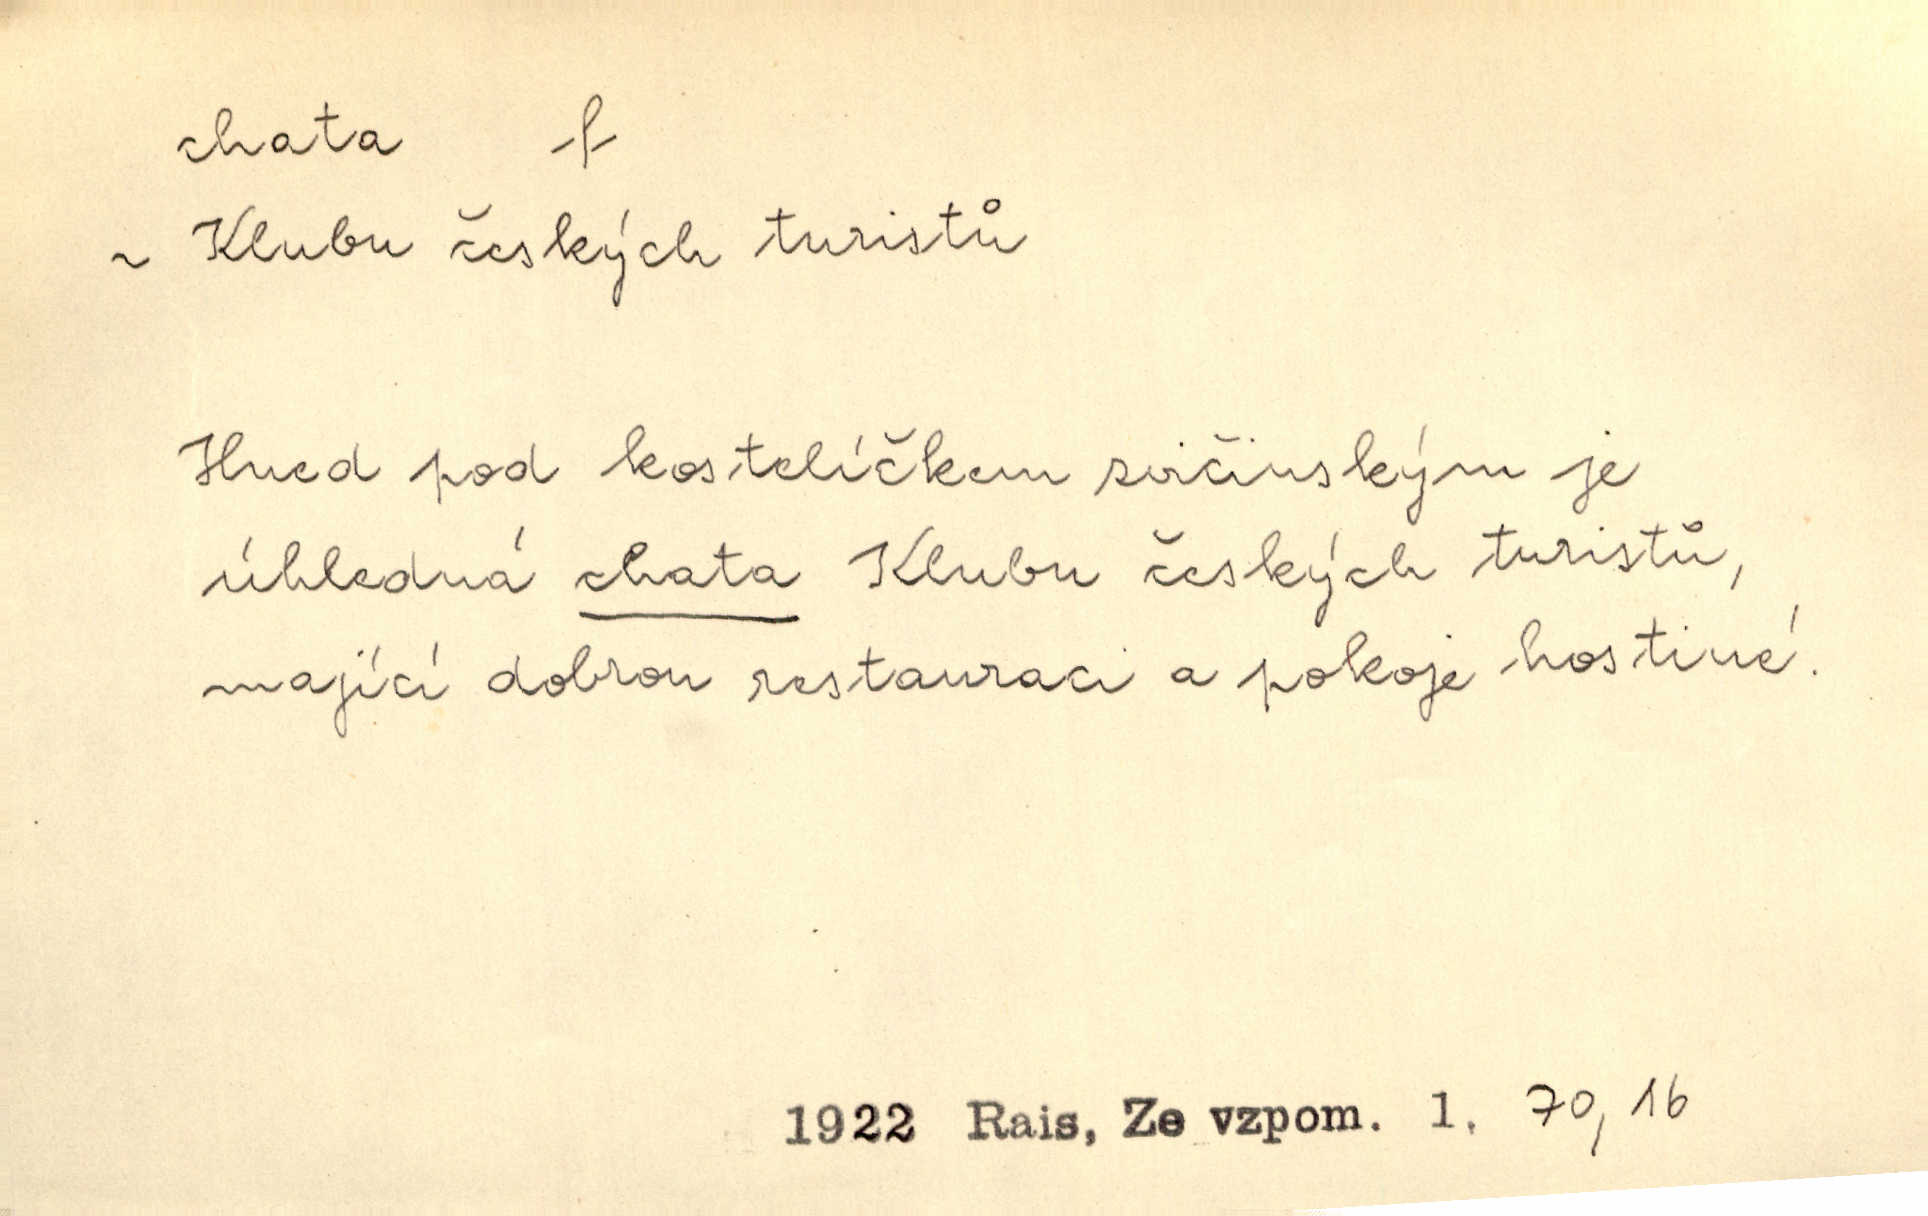 chata f
~ Klubu českých turistů
Hned pod kostelíčkem zvičinským je
úhledná chata Klubu českých turistů,
mající dobrou restauraci a pokoje hostiné.
1922 Rais, Ze vzpom. 1. 70, 16